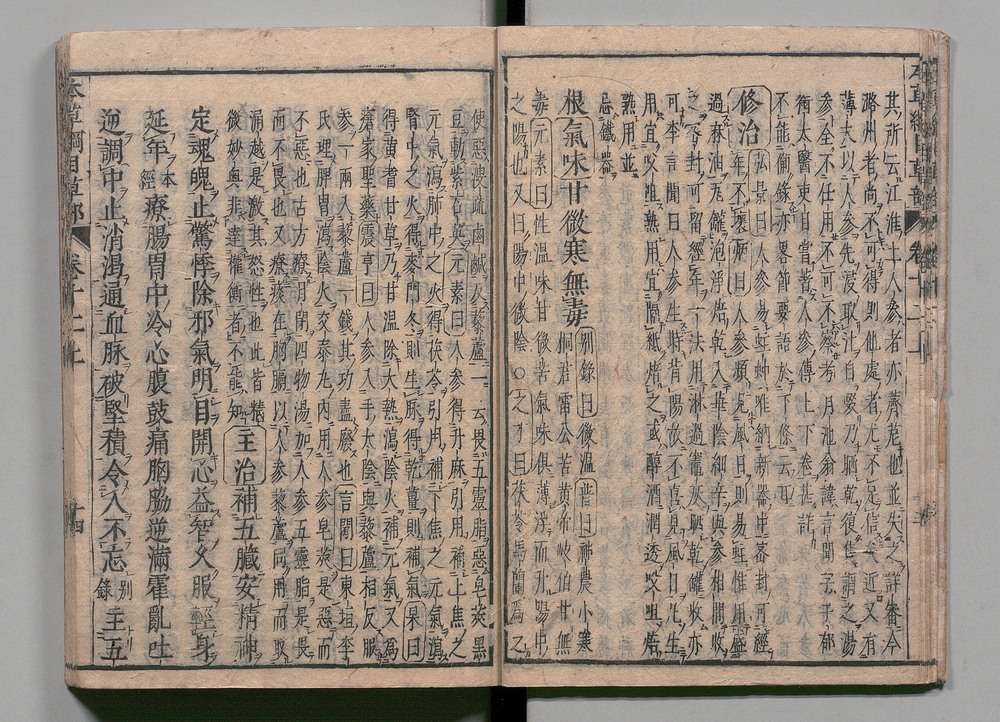 其所云江淮土人參者亦薺苨也並失之詳審今
潞州者尚不可得則他處者尤不足信矣近又有
薄夫以人參先浸取汁自啜乃晒乾復售謂之湯
參全不任用不可不察考月池翁諱言聞字子郁
銜太醫吏目嘗著人參傳上下卷甚詳
不能備錄亦略節要語於下條云耳
修治弘景曰人參易蛀蚛唯納新器中密封可經
年不壞炳曰人參頻見風日則易蛀惟用盛
過麻油瓦罐泡淨焙乾入華陰細辛與參相間收
之密封可留經年一法用淋過竈灰晒乾罐收亦
可李言聞曰人參生時背陽故不喜見風日凡生
用宜㕮咀熟用宜隔紙焙之或醇酒潤透㕮咀焙
熟用並
忌鐵器
根氣味甘微寒無毒別錄曰微溫普曰神農小寒
桐君雷公苦黃帝岐伯甘無
毒元素曰性溫味甘微苦氣味俱薄浮而升陽中
之陽也又曰陽中微陰○之才曰茯苓馬藺為之
使惡溲疏鹵鹹反藜蘆一云畏五靈脂惡皂莢黑
豆動紫石英元素曰人參得升麻引用補上焦之
元氣瀉肺中之火得茯苓引用補下焦之元氣瀉
腎中之火得麥門冬則生脉得乾薑則補氣杲曰
得黃耆甘草乃甘溫除大熱瀉陰火補元氣又為
瘡家聖藥震亨曰人參入手太陰與藜蘆相反服
參一兩入藜蘆一錢其功盡廢也言聞曰東垣李
氏理脾胃瀉陰火交泰丸內用人參皂莢是惡而
不惡也古方療月閉四物湯加人參五靈脂是畏
而不畏也又療痰在胸膈以人參藜蘆同用而取
涌越是激其怒性也此皆精
微妙奧非達權衡者不能知主治補五臟安精神
定魂魄止驚悸除邪氣明目開心益智久服輕身
延年本經療腸胃中冷心腹鼓痛胸脇逆滿霍亂吐
逆調中止消渴通血脉破堅積令人不忘別錄主五
本草綱目草部 卷十二上 十四